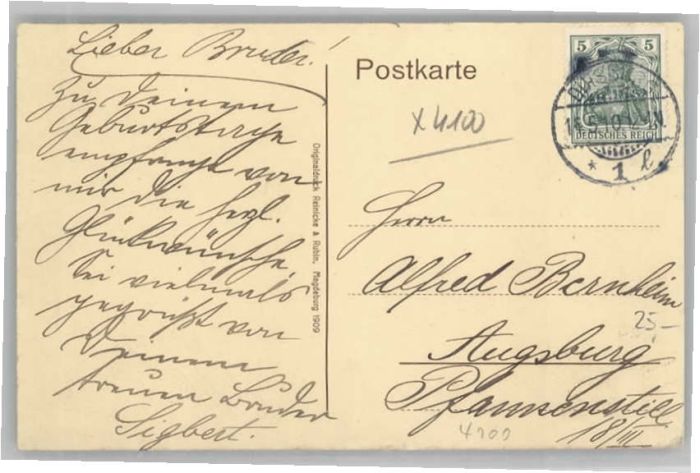 Lieber Bruder!
Zu Deinem
Geburtstage
empfange von
mir die herzl.
Glückwünsche,
Sei vielmals
gegrüßt von
Deinem
treuen Bruder
Sigbert.
Originaldruck Reinicke & Rubin, Magdeburg 1909
Postkarte
X4100
5 5
DEUTSCHES REICH
* 1 l
Herrn
Alfred Bernheim
25,-
Augsburg
Pfannenstiel
18/III
4100